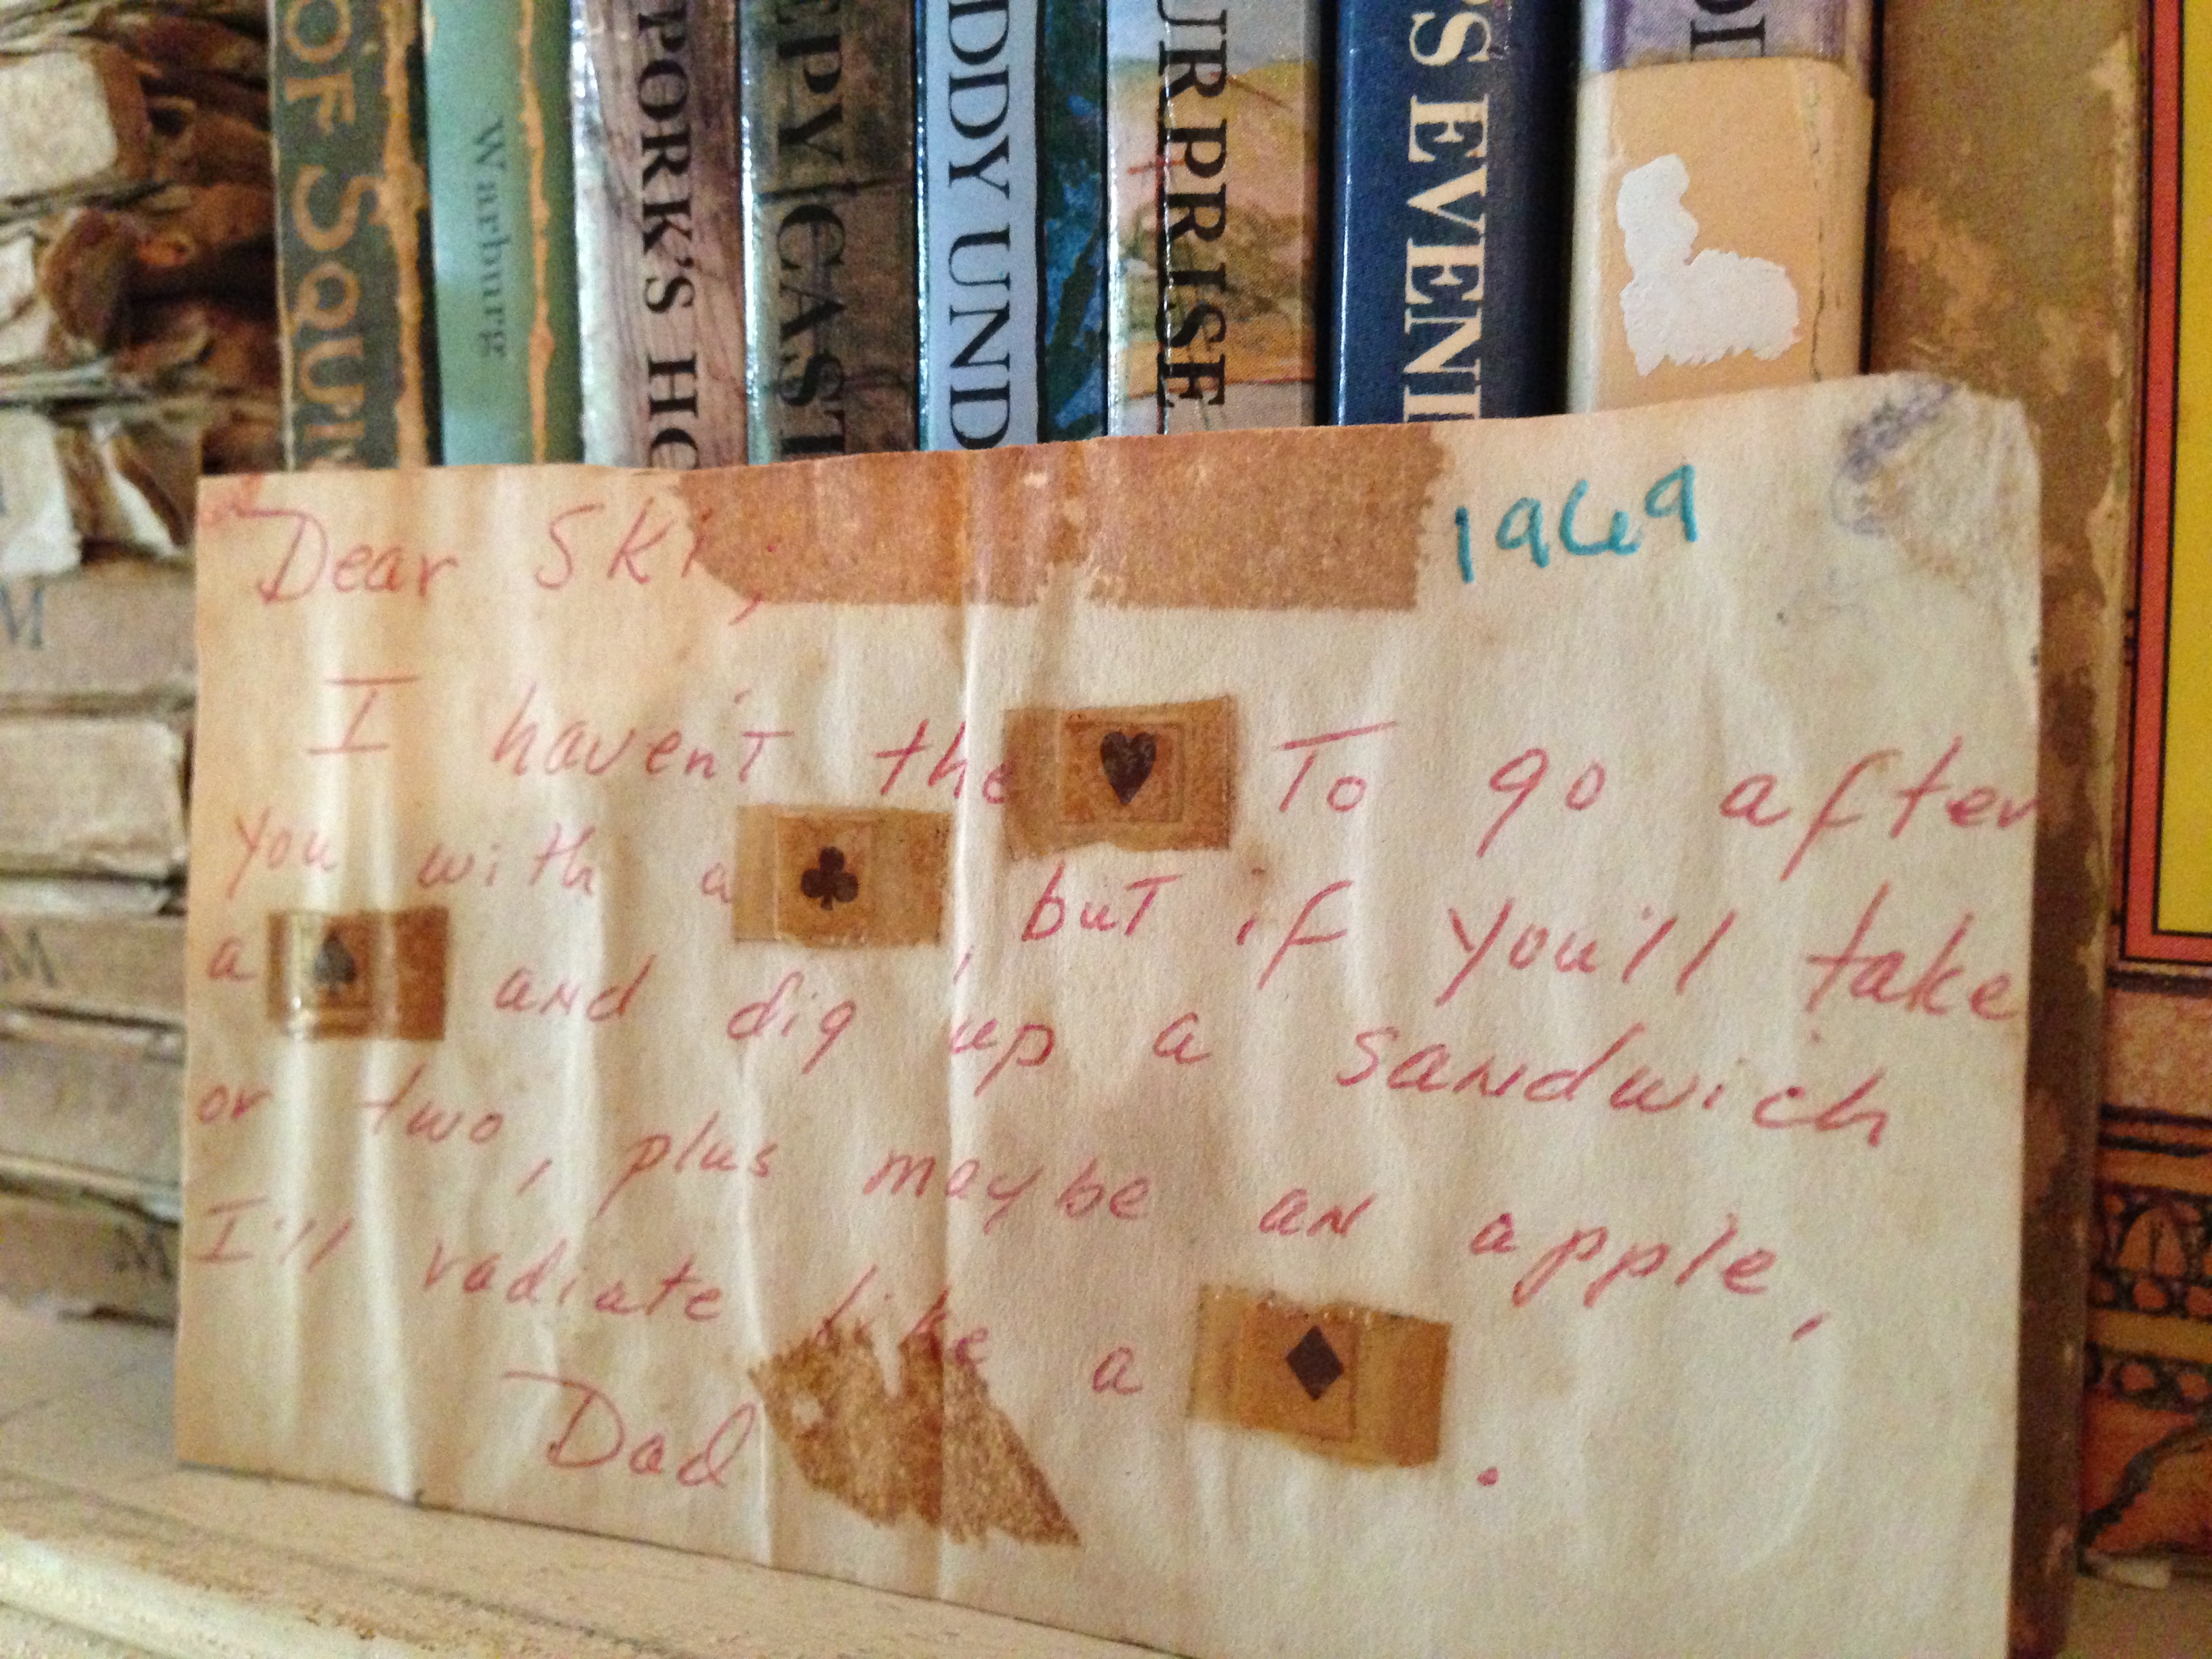 OF SQUI
Warburg
PORK'S HO
EPY CAST
DDY UND
URPRISE
'S EVENI
M
M
M
1969
Dear Ski,
I haven't the ♥ To go after
you with a ♣, but if you'll take
a ♠ and dig up a sandwich
or two, plus maybe an apple,
I'll radiate like a ♦.
Dad